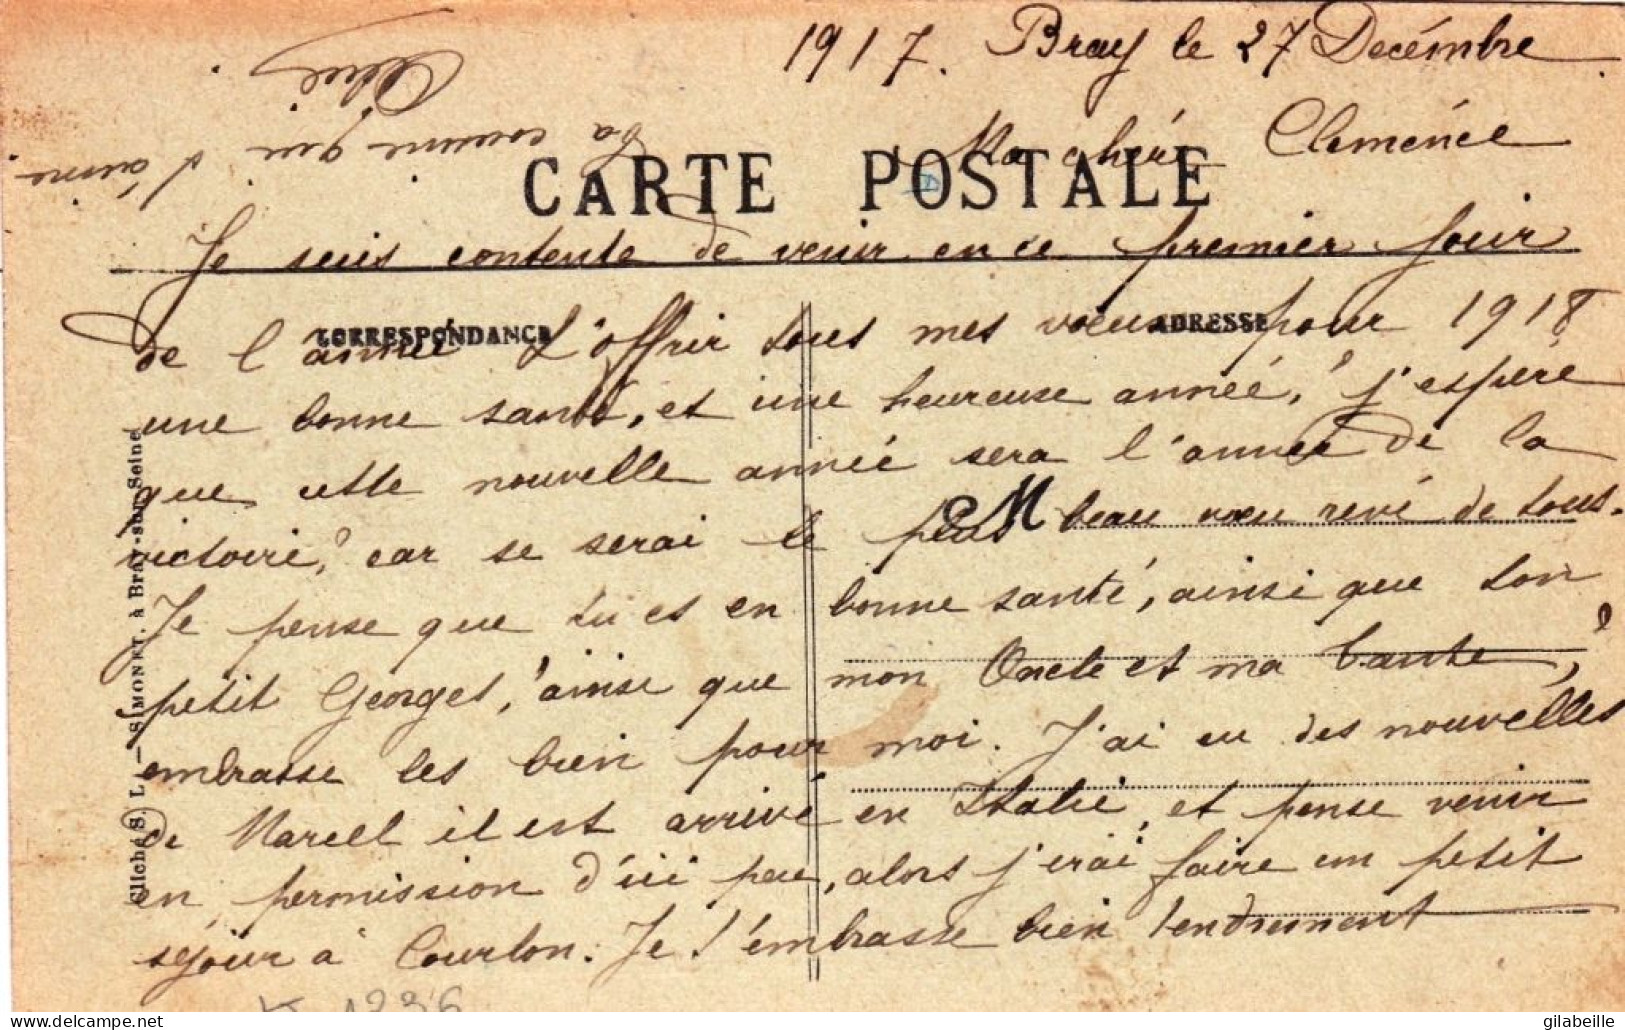 1917. Bray le 27 Decémbre
Ma chére Clemence
CARTE POSTALE
Je suis contente de venir en ce premier jour
CORRESPONDANCE
ADRESSE
de l'année t'offrir tous mes vœux pour 1918
une bonne santé, et une heureuse année, j'espère
que cette nouvelle année sera l'année de la
victoire, car se serai le plus beau vœu revé de tous.
M
Je pense que tu es en bonne santé, ainsi que ton
petit Georges, ainsi que mon Oncle et ma tante,
embrasse les bien pour moi. J'ai eu des nouvelles
de Marcel il est arrivé en Italie, et pense venir
en permission d'ici peu, alors j'irai faire un petit
séjour à Courlon. Je t'embrasse bien tendrement
Ta cousine qui t'aime
Cliché S. L. — SIMONET, à Bray-sur-Seine
K 1236
gilabeille